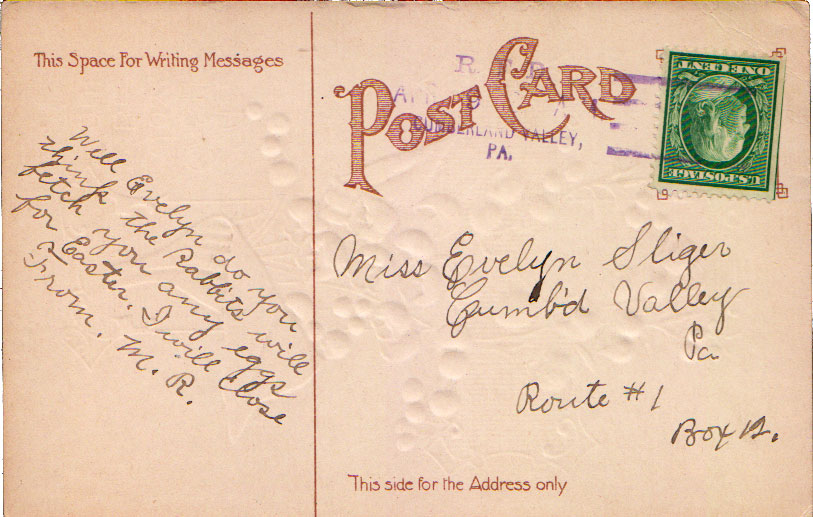 This Space For Writing Messages
Well Evelyn do you
think the Rabbits will
fetch you any eggs
for Easter. I will close
From. M. R.
POST CARD
R.F.D.
CUMBERLAND VALLEY,
PA.
U.S. POSTAGE
ONE CENT
Miss Evelyn Sliger
Cumb'd Valley
Pa
Route #1
Box 12.
This side for the Address only